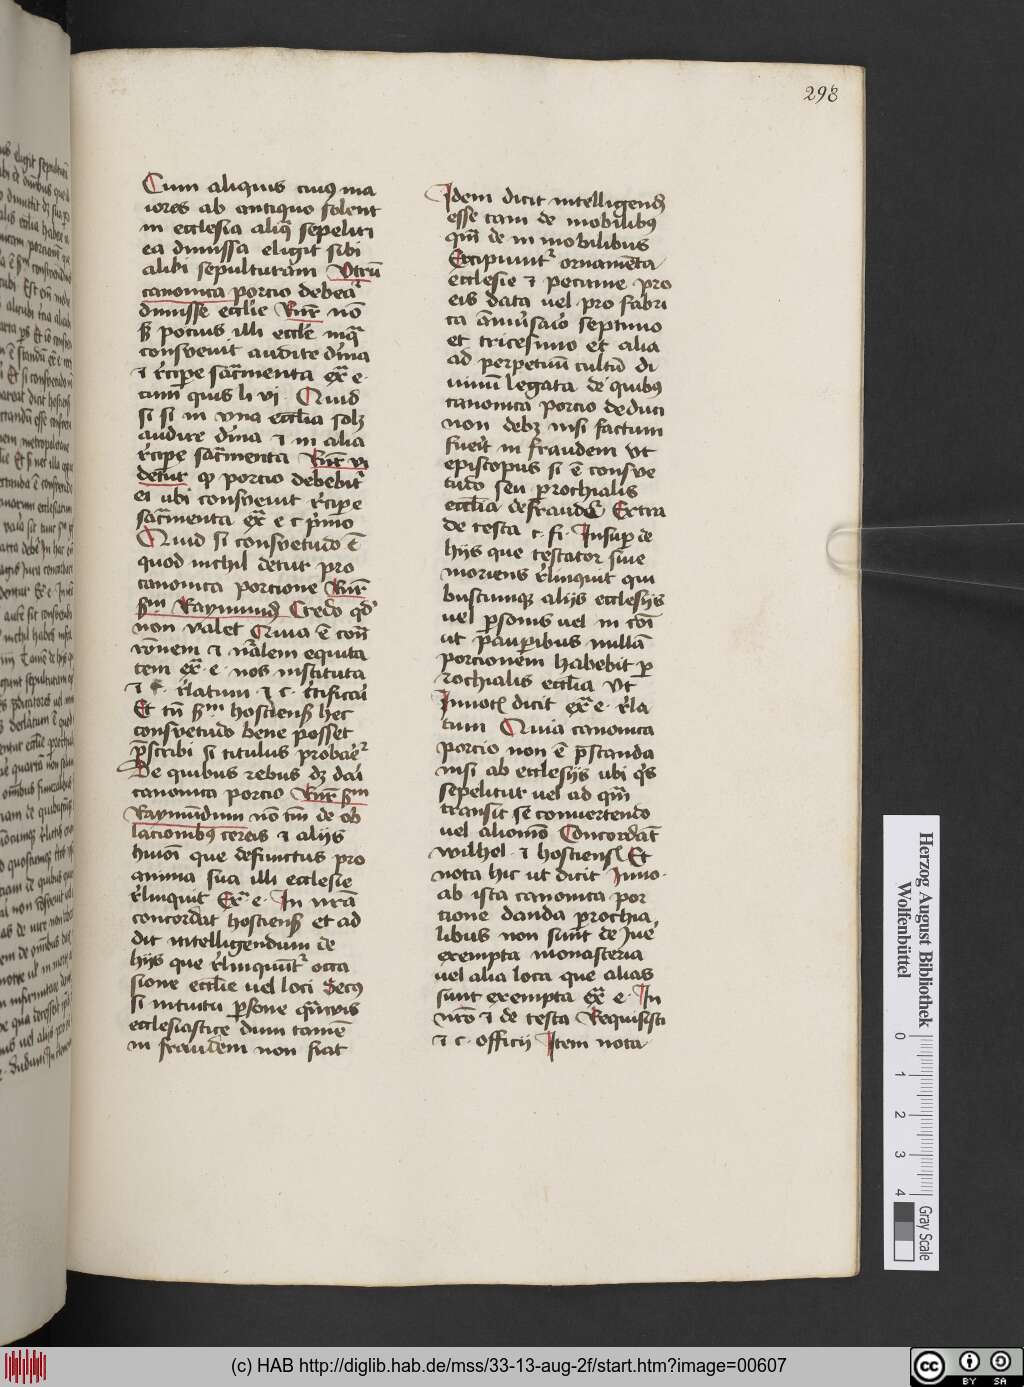 298
Cum aliquis cuiꝰ ma
iores ab antiquo solent
in ecclesia aliq̄ sepeliri
ea dimissa eligit sibi
alibi sepulturam Vtrū
canonica porcio debeat᷑
dimisse eccl̄ie Rn̄r nō
sꝫ pocius illi eccl̄e inqͣ
consveuit audire diīna
⁊ r̄cipe sac̄menta ex̄ͣ e·
cum quis li vi· Quid
si si in vna eccl̄ia solꝫ
audire diīna ⁊ in alia
r̄cipe sac̄menta Rn̄r vi
detur ꝙ porcio debebit᷑
ei ubi consveuit r̄cipe
sac̄menta ex̄ͣ e c pͥmo
Quid si consvetudo ē
quod nichil detur pro
canonica porcione Rn̄r
scd̄m Raymund̄ Credo qd̄
non valet Quia ē con̄
rōnem ⁊ nālem equita
tem ex̄ͣ e· nos instituta
⁊ c· r̄latum ⁊ c· r̄tificaū
Et tn̄ scd̄m hostienß hec
consvetudo bene posset
p̄scribi si titulus probaret᷑
De quibus rebus dꝫ dari
canonica porcio Rn̄r scd̄m
Raymundum nō tm̄ de ob
lacionibꝰ cereis ⁊ alijs
huiōi que defunctus pro
anima sua illi ecclesie
r̄linquit Ex̄ͣ e· In nr̄ā
concordat hostienß et ad
dit intelligendum de
hijs que r̄linquunt᷑ occa
sione eccl̄ie vel loci Secꝰ
si intuitu ꝑsone quāvis
ecclesiastice dum tamē
in fraudem non fiat
Idem dicit intelligendꝫ
esse tam de mobilibꝰ
qm̄ de in mobilibus
Excipiunt᷑ ornamēta
ecclesie ⁊ pecunie pro
eis data vel pro fabri
ca anniꝰsario septimo
et tricesimo et alia
ad perpetuū cultū di
uinū legata de quibꝰ
canonica porcio deduci
non debꝫ nisi factum
fuerit in fraudem vt
episcopus si ē consve
tudo seu ꝑrochialis
eccl̄ia defraudet᷑ Extra
de testa c· fi· Insuꝑ de
hijs que testator siue
moriens r̄linquit qui
buscumqꝫ alijs ecclesijs
vel ꝑsonis vel in cōi
ut p̄auꝑibus nullā
porcionem habebit ꝑ
rochialis eccl̄ia Vt
Innoc̄ dicit ex̄ͣ e· r̄la
tum Quia canonica
porcio non ē p̄standa
nisi ab ecclesijs ubi qͥs
sepelitur vel ad qm̄
transit se conuertendo
vel aliomō Concordāt
wilhel· ⁊ hostienß Et
nota hic ut dicit Inno·
ab ista canonica por
tione danda ꝑrochia
libus non sunt de iure
exempta monasteria
vel alia loca que alias
sunt exempta ex̄ͣ e· In
nr̄o ⁊ de testa Requisisti
⁊ c· officij Item nota
Herzog August Bibliothek
Wolfenbüttel
0 1 2 3 4
Gray Scale
(c) HAB http://diglib.hab.de/mss/33-13-aug-2f/start.htm?image=00607
cc BY SA